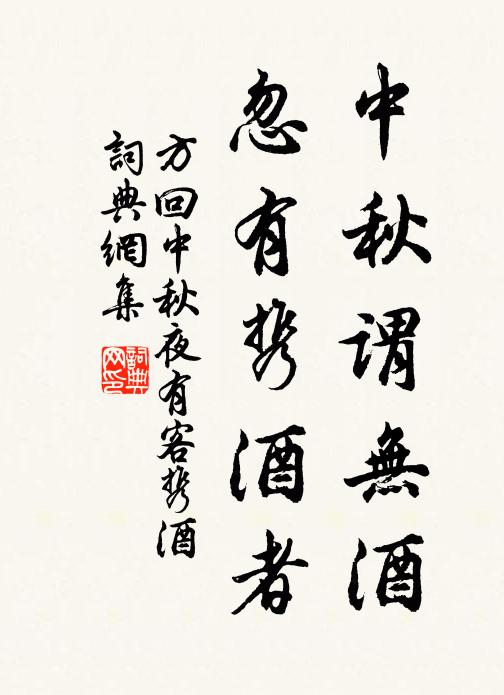 中秋謂無酒
忽有携酒者
方回中秋夜有客携酒
詞典網集
詞典网印